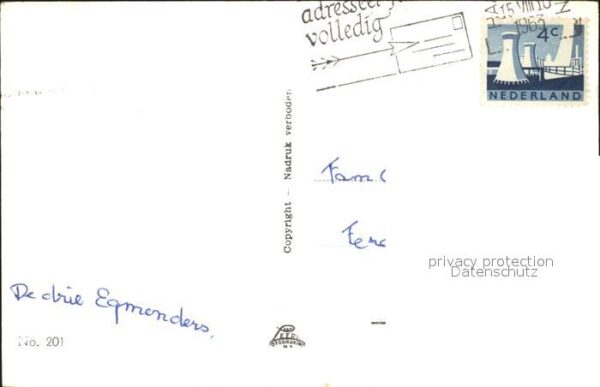 adresseer
volledig
15 VIII 18
1963
4c
NEDERLAND
Copyright - Nadruk verboden
Fam
privacy protection
Datenschutz
De drie Egmonders,
No. 201